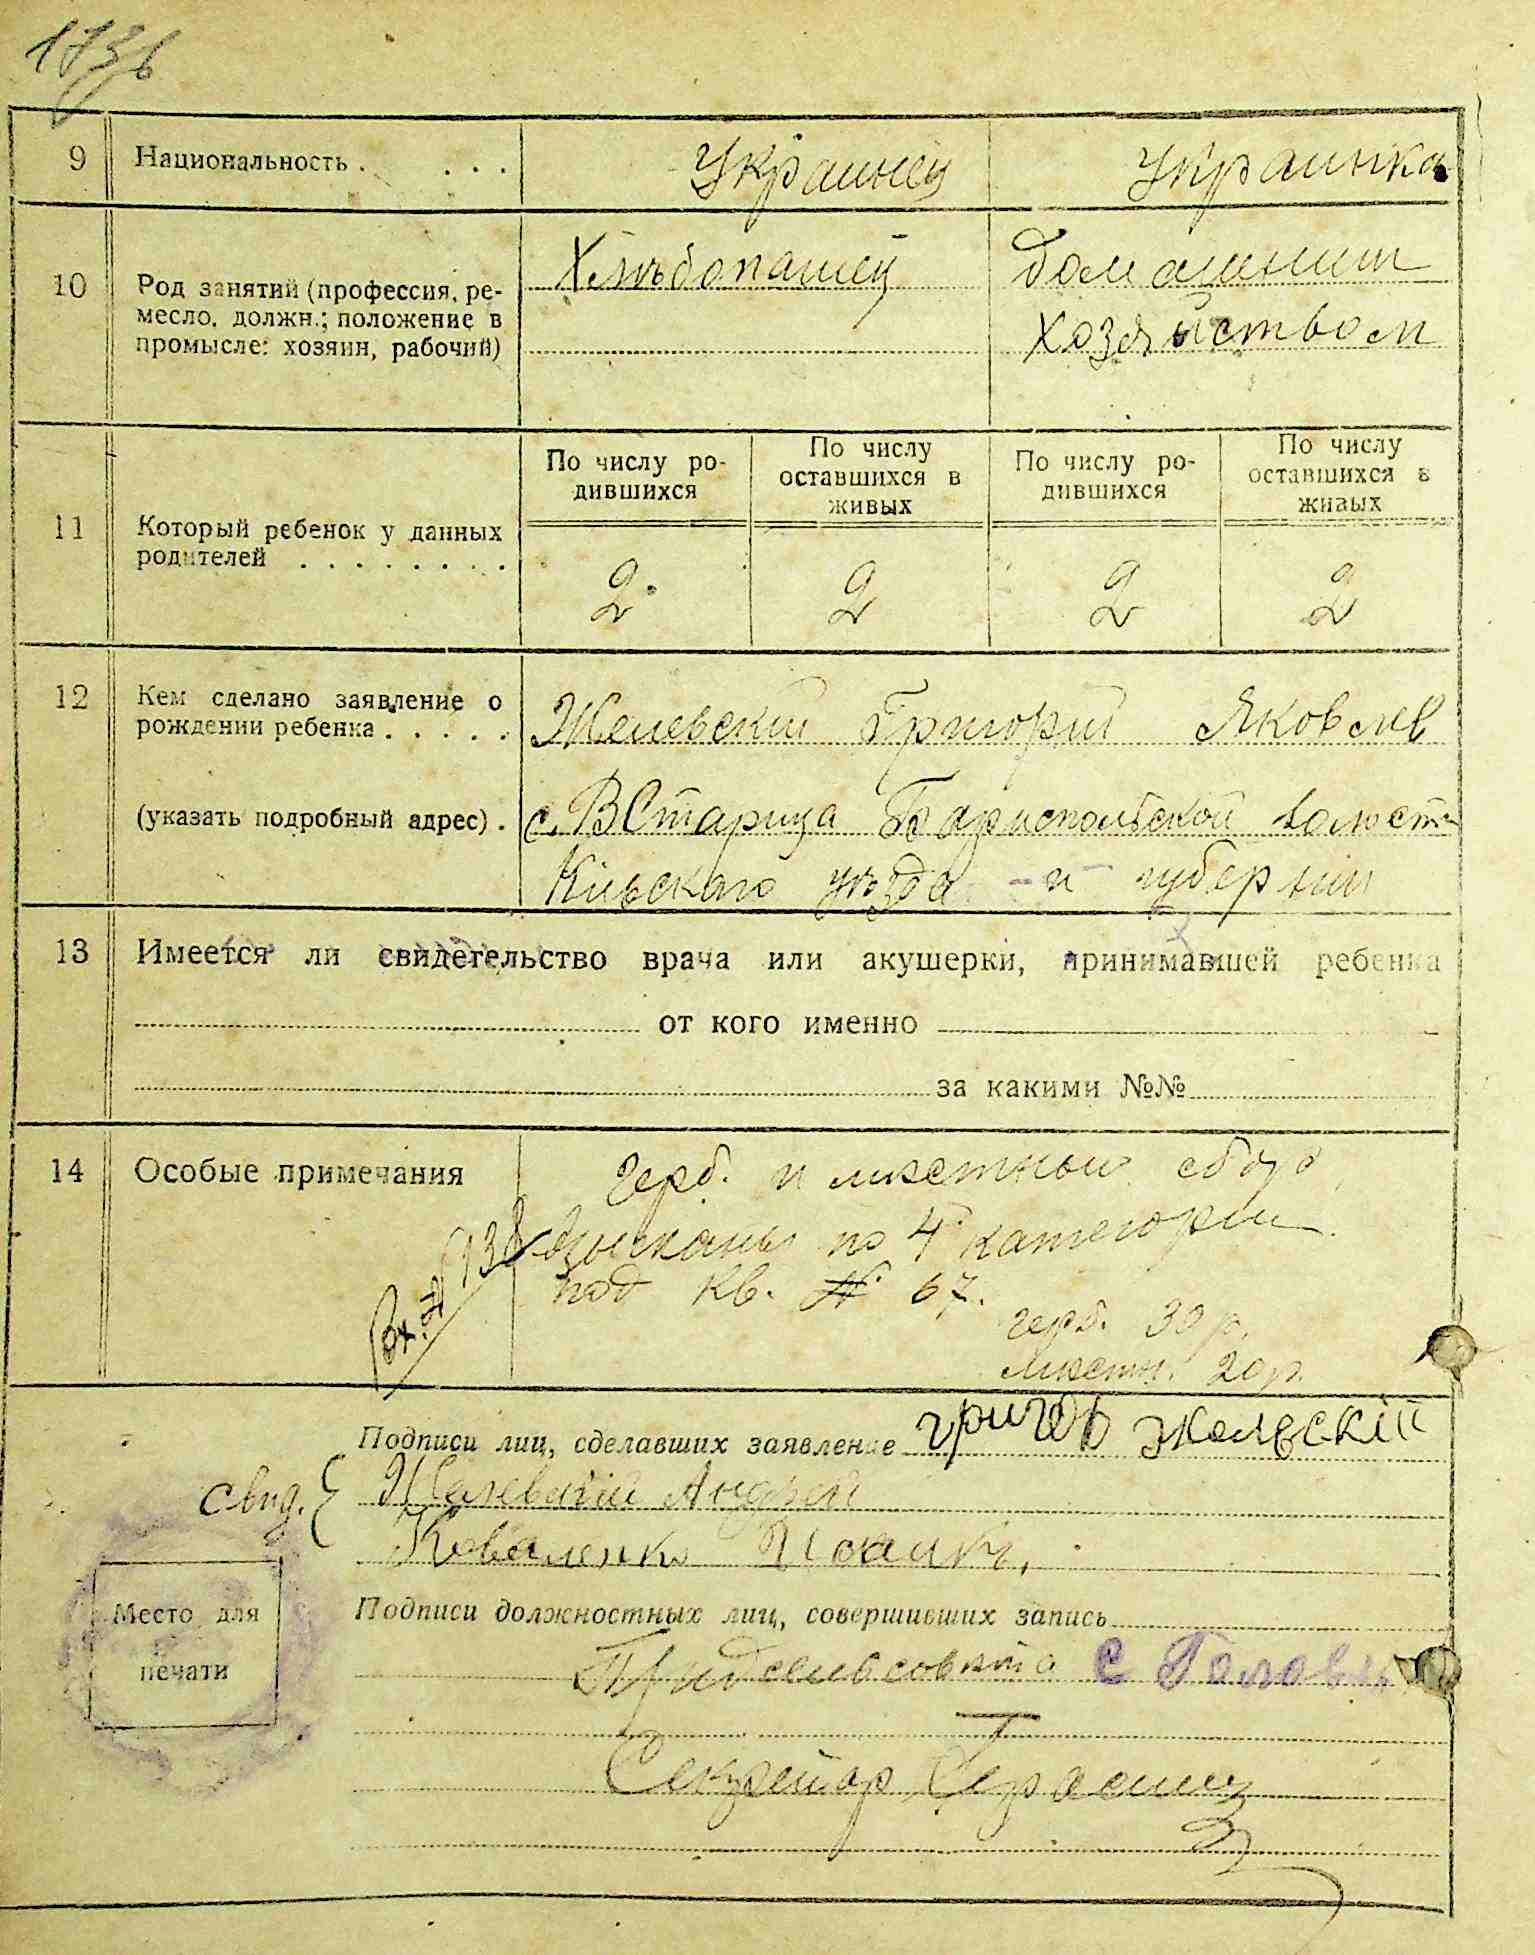 173б
9 Национальность . . . . Украинец Украинка
10 Род занятий (профессия, ре-
месло, должн.; положение в
промысле: хозяин, рабочий)
Хлѣбопашец
домашним
хозяйством
11 Который ребенок у данных
родителей . . . . . . . .
По числу ро-
дившихся
По числу
оставшихся в
живых
По числу ро-
дившихся
По числу
оставшихся в
живых
2 2 2 2
12 Кем сделано заявление о
рождении ребенка . . . . .
Желевский Григорий Яковлев
(указать подробный адрес) .
с. ВСтарица Барыспольской волости
Киевскаго уѣзда и губернии
13 Имеется ли свидетельство врача или акушерки, принимавшей ребенка
от кого именно
за какими №№
14 Особые примечания
герб. и местный сбор
взысканы по 4 категории
под кв. № 67.
герб. 30 р.
местн. 20 р.
Вх. №
Подписи лиц, сделавших заявление григорь желевскій
свид. { Желевский Андрей
Коваленко
Место для
печати
Подписи должностных лиц, совершивших запись
Пред сельсовета С
Секретар